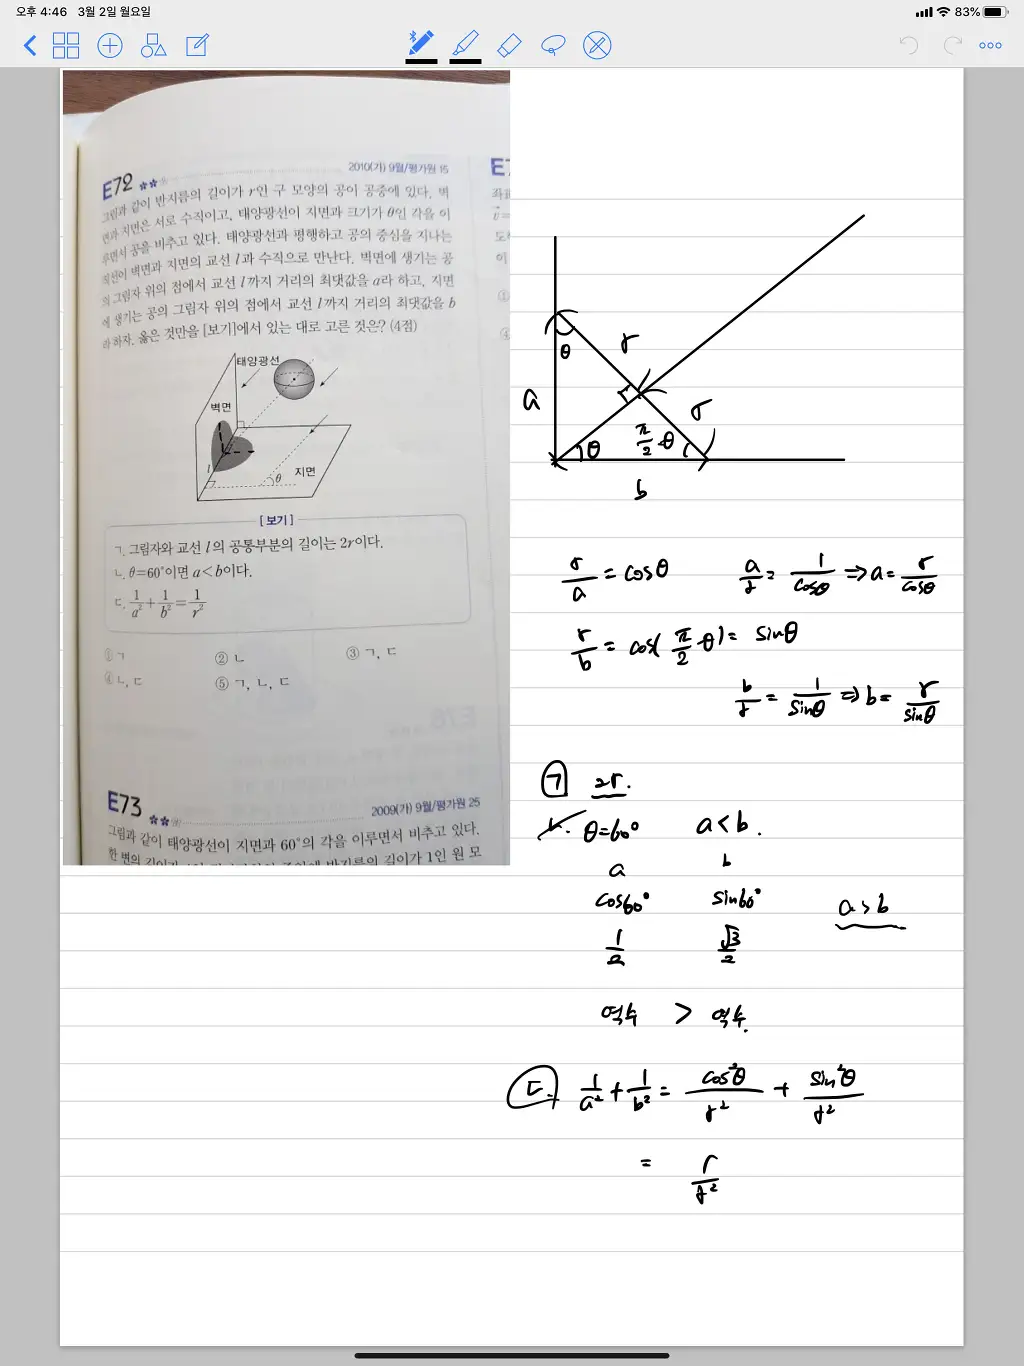 오후 4:46 3월 2일 월요일
83%
E72
2010(가) 9월/평가원 15
그림과 같이 반지름의 길이가 r인 구 모양의 공이 공중에 있다. 벽
면과 지면은 서로 수직이고, 태양광선이 지면과 크기가 θ인 각을 이
루면서 공을 비추고 있다. 태양광선과 평행하고 공의 중심을 지나는
직선이 벽면과 지면의 교선 l과 수직으로 만난다. 벽면에 생기는 공
의 그림자 위의 점에서 교선 l까지 거리의 최댓값을 a라 하고, 지면
에 생기는 공의 그림자 위의 점에서 교선 l까지 거리의 최댓값을 b
라 하자. 옳은 것만을 [보기]에서 있는 대로 고른 것은? (4점)
태양광선
벽면
l
θ
지면
[보기]
ㄱ. 그림자와 교선 l의 공통부분의 길이는 2r이다.
ㄴ. θ=60°이면 a<b이다.
ㄷ. 1/a² + 1/b² = 1/r²
① ㄱ ② ㄴ ③ ㄱ, ㄷ
④ ㄴ, ㄷ ⑤ ㄱ, ㄴ, ㄷ
E73
2009(가) 9월/평가원 25
그림과 같이 태양광선이 지면과 60°의 각을 이루면서 비추고 있다.
θ r
a r
θ π/2-θ
b
r/a = cosθ a/r = 1/cosθ ⇒ a = r/cosθ
r/b = cos(π/2-θ) = sinθ
b/r = 1/sinθ ⇒ b = r/sinθ
ㄱ 2r.
ㄴ. θ=60° a<b.
a b
cos60° sin60° a>b
1/2 √3/2
역수 > 역수.
ㄷ. 1/a² + 1/b² = cos²θ/r² + sin²θ/r²
= 1/r²